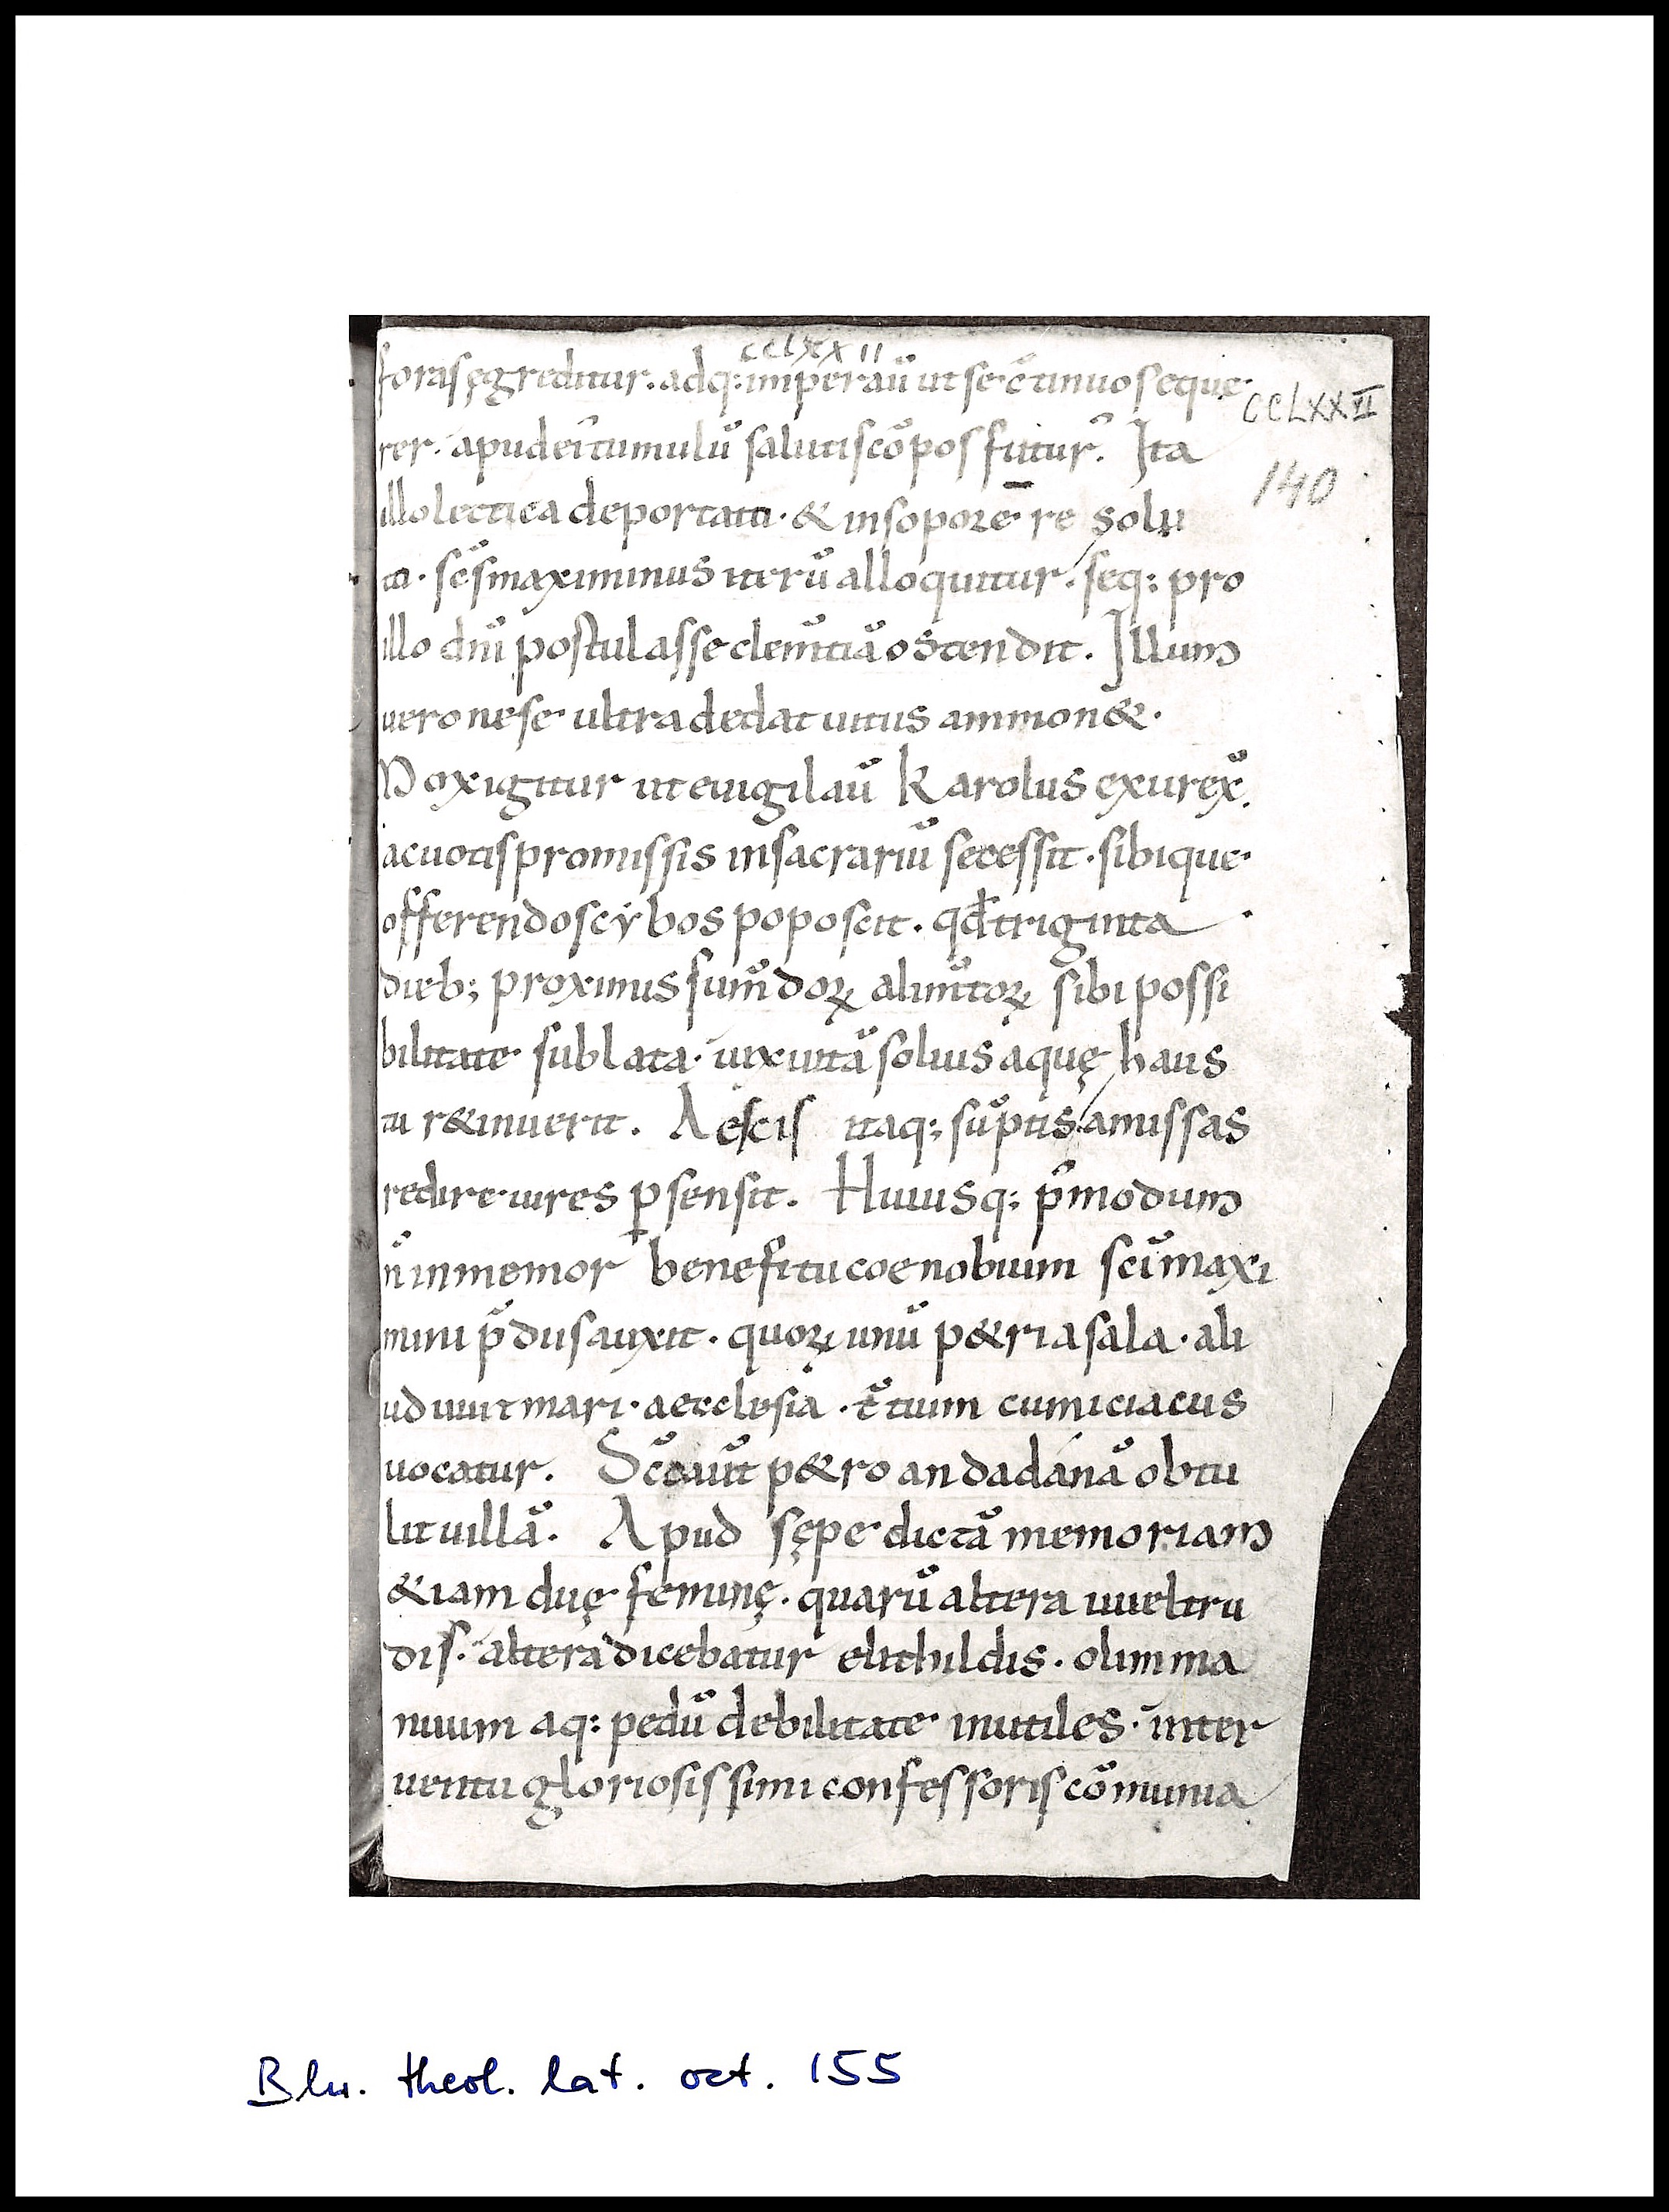 CCLXXII
foras ęgreditur. adq: imperaū ut se c̄tinuo seque
CCLXXII
rer. apud ei᷎ tumulū salutis cōpos futur᷎. Ita
140
illo lectica deportati. & in sopore re solu
ti. sc̄s maximinus iterū alloquitur. seq: pro
illo dn̄i postulasse clem̄tiā ostendit. Illum
uero ne se ultra dedat uitiis ammon&.
Mox igitur ut euigilaū Karolus exurex̄.
ac uotis promissis in sacrariū secessit. sibique
offerendos cybos poposcit. qd̄ triginta
dieb; proximis sum̄doꝝ alim̄toꝝ sibi possi
bilitate sublata. uix uitā solius aquę haus
tu r&inuerit. Aescis itaq; sūptis amissas
redire uires ꝑsensit. Huiusq: p̄modum
n̄ inmemor beneficii coenobium sc̄i maxi
mini p̄diis auxit. quoꝝ unū p&riasala. ali
ud uuitmari. aecclesia. t̄tium cumiciacus
uocatur. Sc̄o aūt p&ro andadanā obtu
lit uillā. Apud sępe dictā memoriam
&iam duę feminę. quarū altera uueltru
dis. altera dicebatur elithildis. olim ma
nuum aq: pedū debilitate inutiles. inter
uentu gloriosissimi confessoris cōmunia
Bln. theol. lat. oct. 155